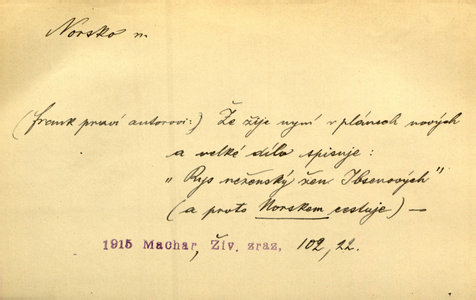 Norsko n.
(frenk praví autorovi:) Že žije nyní v plánech nových
a velké dílo spisuje:
"Rys neženský žen Ibsenových"
(a proto Norskem cestuje) —
1915 Machar, Živ. zraz, 102, 22.